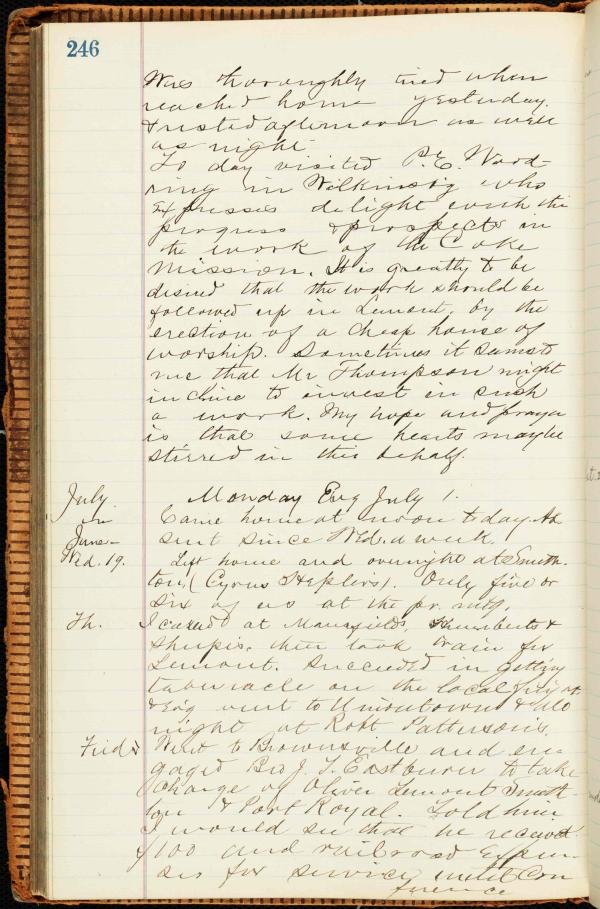 246
Was thoroughly tired when
reached home yesterday.
& rested afternoon as well
as night.
To day visited P. E. Wood-
ring in Wilkinsb'g who
expresses delight with the
progress & prospects in
the work of the Coke
Mission. It is greatly to be
desired that the work should be
followed up in Lemont, by the
erection of a cheap house of
worship. Sometimes it seems to
me that Mr Thompson might
incline to invest in such
a work. My hope and prayer
is, that some hearts may be
stirred in this behalf.
July
Monday Eve July 1.
Came home at noon to day. Ab
sent since Wed. a week.
June
Wed. 19.
Left home and overnight at Smith-
ton, (Cyrus Heplers). Only five or
six of us at the pr. mtg.
Th.
I called at Mansfields,
then took train for
Lemont. Succeeded in getting
tabernacle on the local
& Ev'g went to Uniontown &
night at Robt Patterson's.
Went to Brownsville and en-
gaged Bro J. T. Eastburn to take
charge of Oliver Lemont Smith-
ton & Port Royal. Told him
I would see that he received
$100 and railroad Expen-
ses for service until Con
ference